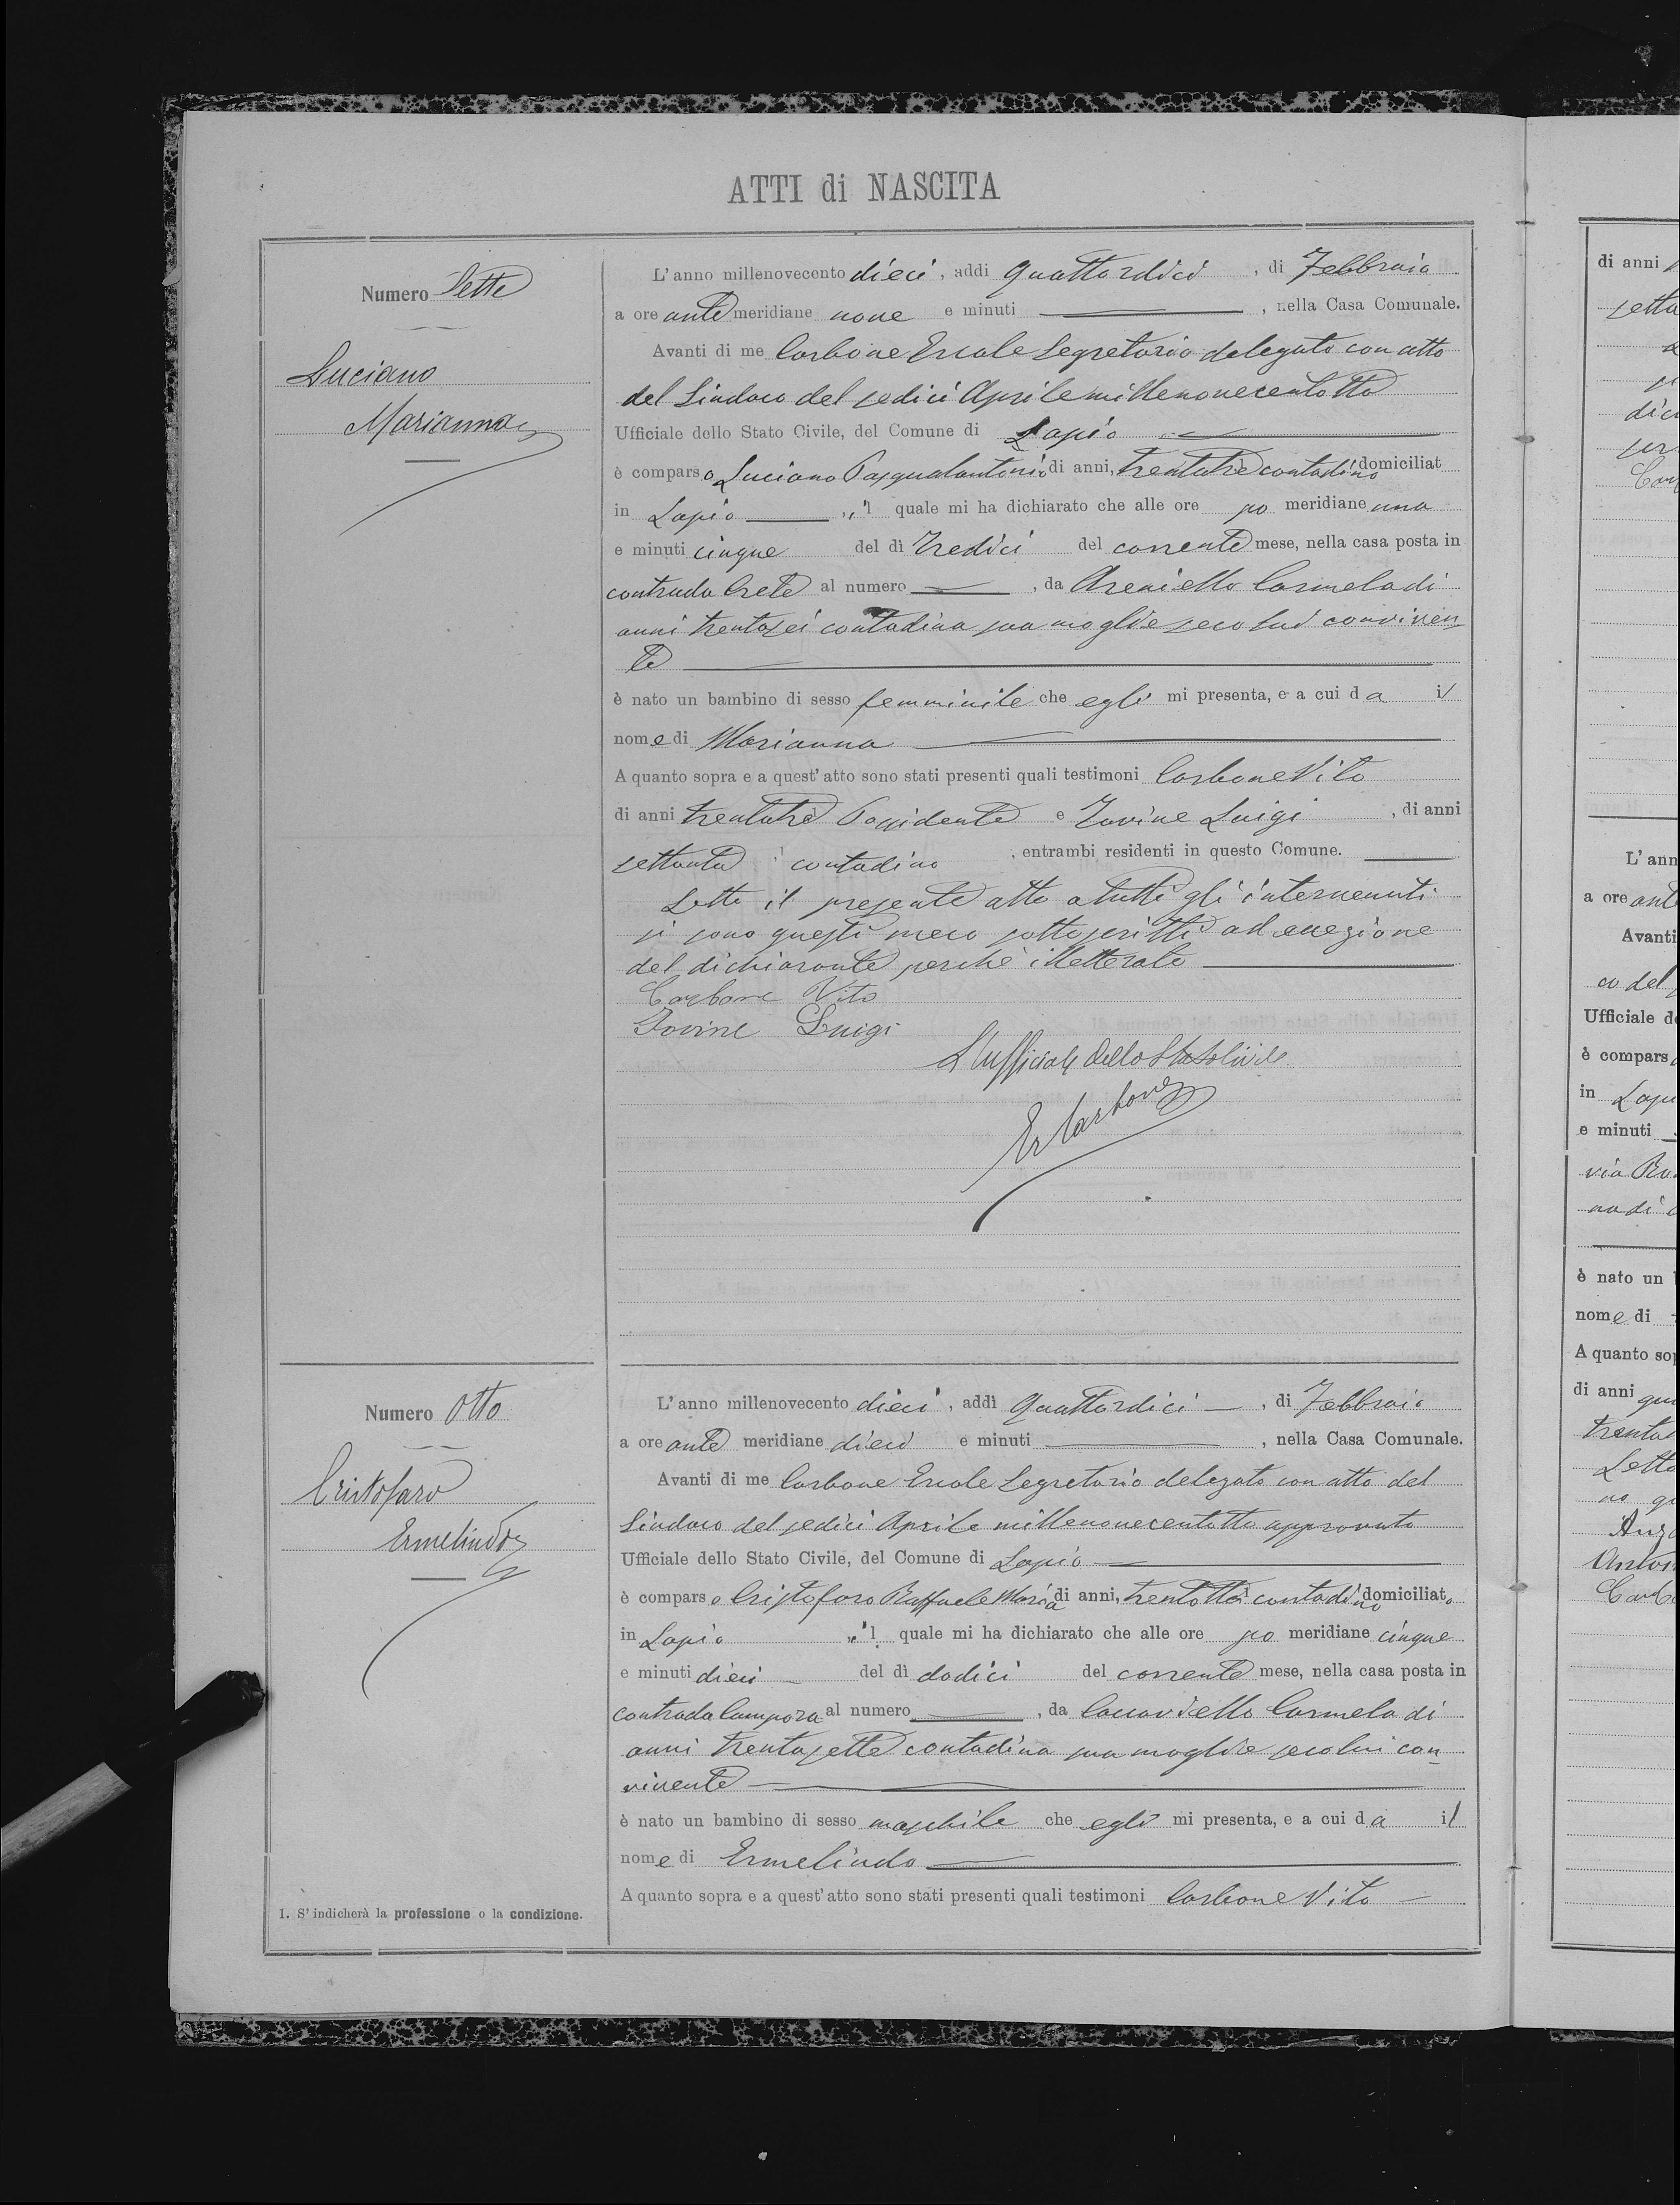 ATTI di NASCITA
Numero Sette
Luciano
Marianna
L'anno millenovecento dieci, addì quattordici, di Febbraio
a ore antemeridiane nove e minuti , nella Casa Comunale.
Avanti di me Carbone Ercole Segretario delegato con atto
del Sindaco del sedici Aprile millenovecentotto
Ufficiale dello Stato Civile, del Comune di Lapio
è comparso Luciano Pasqualantonio di anni, trentatrè contadino domiciliat
in Lapio , il quale mi ha dichiarato che alle ore po meridiane una
e minuti cinque del dì tredici del corrente mese, nella casa posta in
contrada Crete al numero , da Areniello Carmela di
anni trentasei contadina sua moglie seco lui conviven
te
è nato un bambino di sesso femminile che egli mi presenta, e a cui da il
nome di Marianna
A quanto sopra e a quest'atto sono stati presenti quali testimoni Carbone Vito
di anni trentatrè Possidente e Iovine Luigi , di anni
settanta contadino , entrambi residenti in questo Comune.
Letto il presente atto a tutti gli intervenuti
si sono questi meco sottoscritti ad eccezione
del dichiarante perchè illetterato
Carbone Vito
Iovine Luigi
L'ufficiale dello Stato Civile
Er Carbone
Numero Otto
Cristofaro
Ermelindo
L'anno millenovecento dieci, addì quattordici , di Febbraio
a ore ante meridiane dieci e minuti , nella Casa Comunale.
Avanti di me Carbone Ercole Segretario delegato con atto del
Sindaco del sedici Aprile millenovecentotto approvato
Ufficiale dello Stato Civile, del Comune di Lapio
è comparso Cristofaro Raffaele Maria di anni, trentotto contadino domiciliato
in Lapio , il quale mi ha dichiarato che alle ore po meridiane cinque
e minuti dieci del dì dodici del corrente mese, nella casa posta in
contrada Campora al numero , da Caccaviello Carmela di
anni trentasette contadina sua moglie seco lui con
vivente
è nato un bambino di sesso maschile che egli mi presenta, e a cui da il
nome di Ermelindo
A quanto sopra e a quest'atto sono stati presenti quali testimoni Carbone Vito
1. S'indicherà la professione o la condizione.
di anni
setta
dic
L'ann
a ore ant
Avanti
co del
Ufficiale d
è compars
in Lapi
e minuti
via
è nato un
nome di
A quanto sop
di anni
trenta
Letto